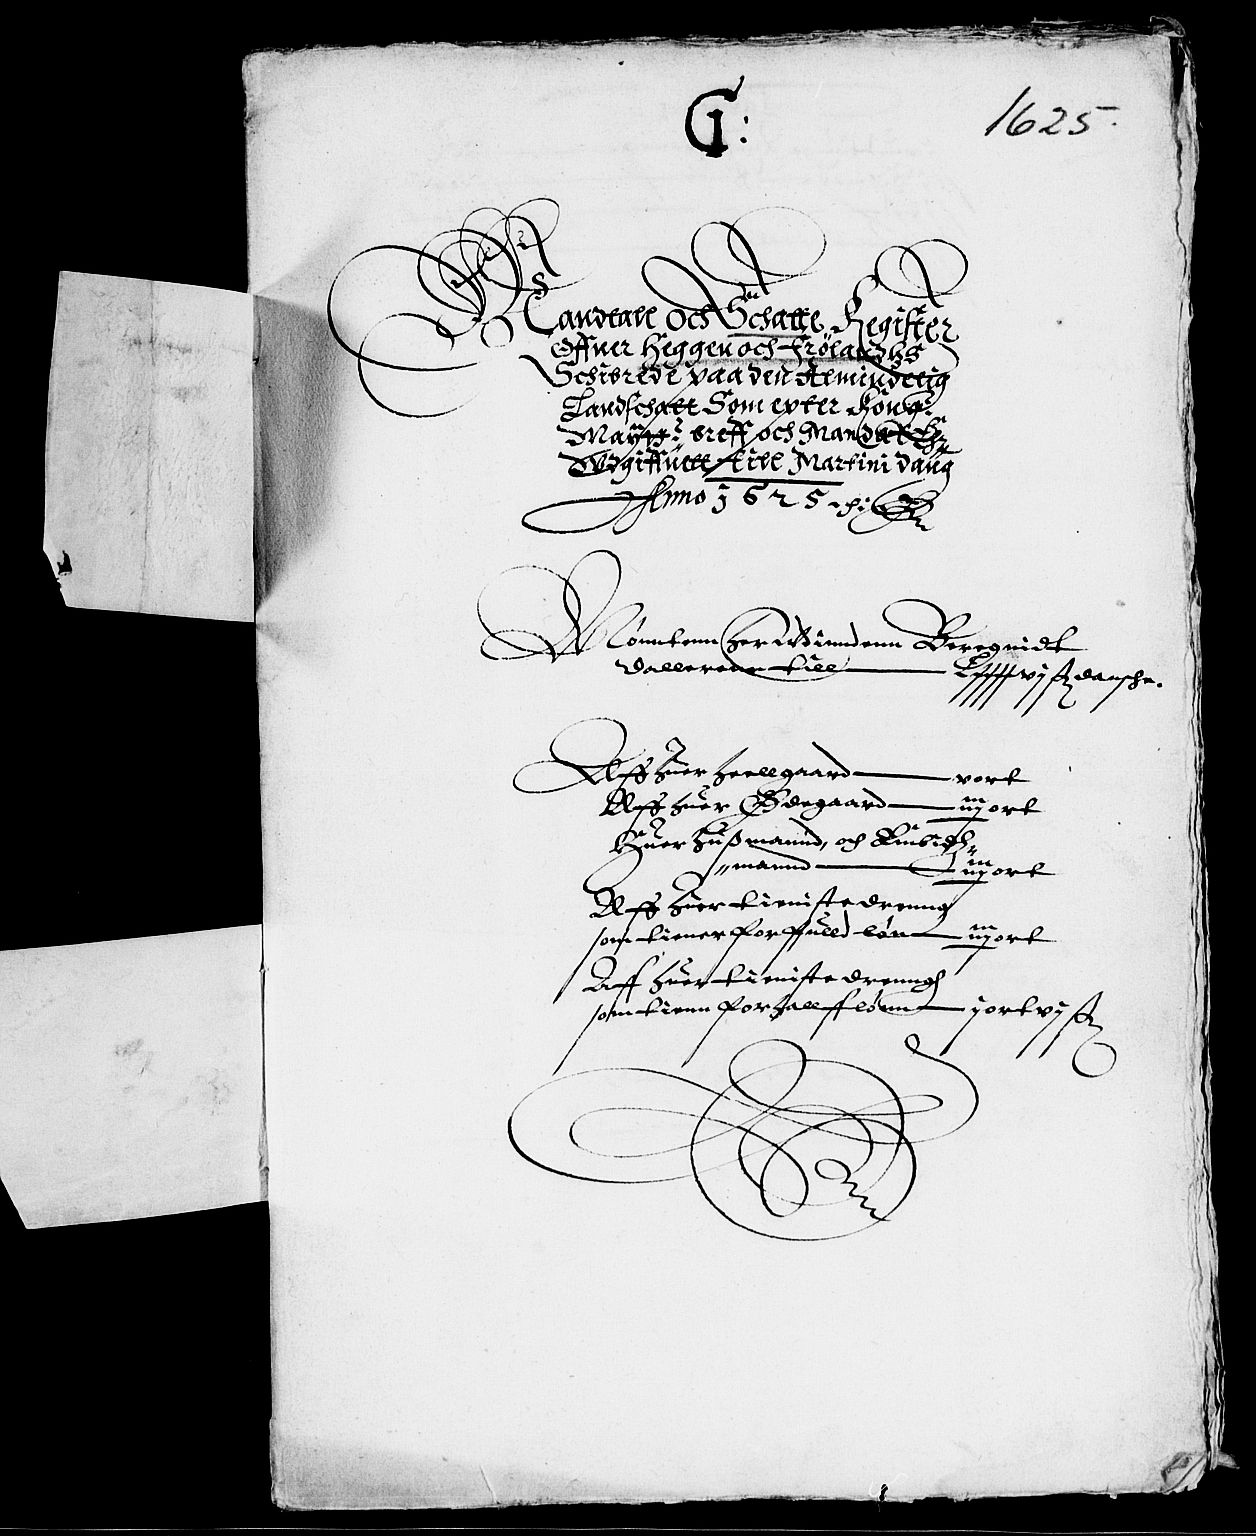 G:
1625.
Mandtall och Schatte Register
Offuer Heggen och Frølandtz
Schibrede paa den Almindelig
Landschatt Som epter Kong:
Maytts: breff och Mandat Er
Wdgiffuett till Martini daug
Anno 1625
Mønntenn her Udinndenn Beregnidt
dallerenn till lxxxxvj ß dansche.
Aff huer heellgaard v ort
Aff huer Ødegaard iij ort
Huer Hußmannd, och Ruubidtz
mannd iij ort
Aff huer tieniste drenng
som tiener for full løn iij ort
Aff huer tieniste drenngh
som tienn for hallf lønn j ort vj ß